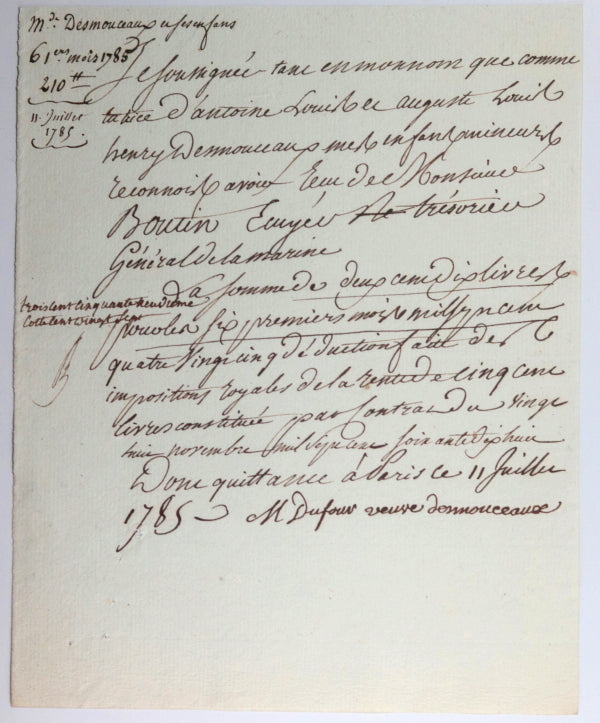 Mde. Desmouceaux et ses enfans
6 1ers mois 1785
210 tt
11. Juillet
1785.
Je soussignée tant en mon nom que comme
tutrice d'antoine Louis et auguste Louis
henry Desmouceaux mes enfans mineurs
reconnois avoir reçu de Monsieur
Boutin Ecuyer trésorier
Général de la marine
La somme de deux cent dix livres
trois cent cinquante neuvieme
Cotte cent vingt sept
pour les six premiers mois mil sept cent
quatre vingt cinq déduction faite des
impositions royales de la rente de cinq cent
livres constituée par Contrat du vingt
huit novembre mil sept cent soixante dix huit
Dont quittance à Paris ce 11 Juillet
1785 M Dufour veuve desmouceaux